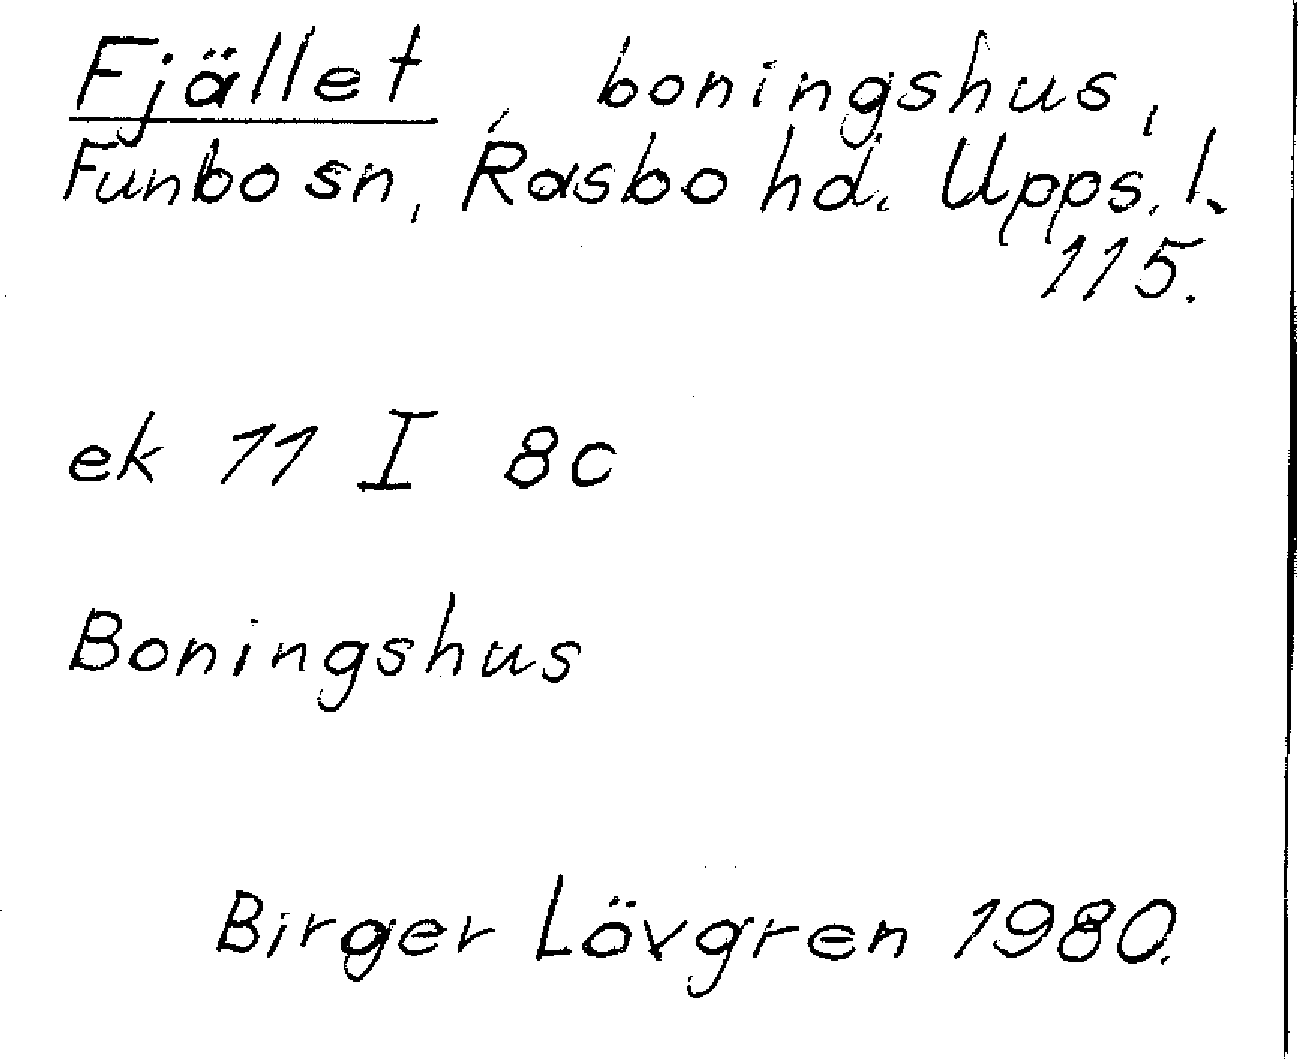 Fjället, boningshus,
Funbo sn, Rasbo hd. Upps. l.
115.
ek 11 I 8c
Boningshus
Birger Lövgren 1980.